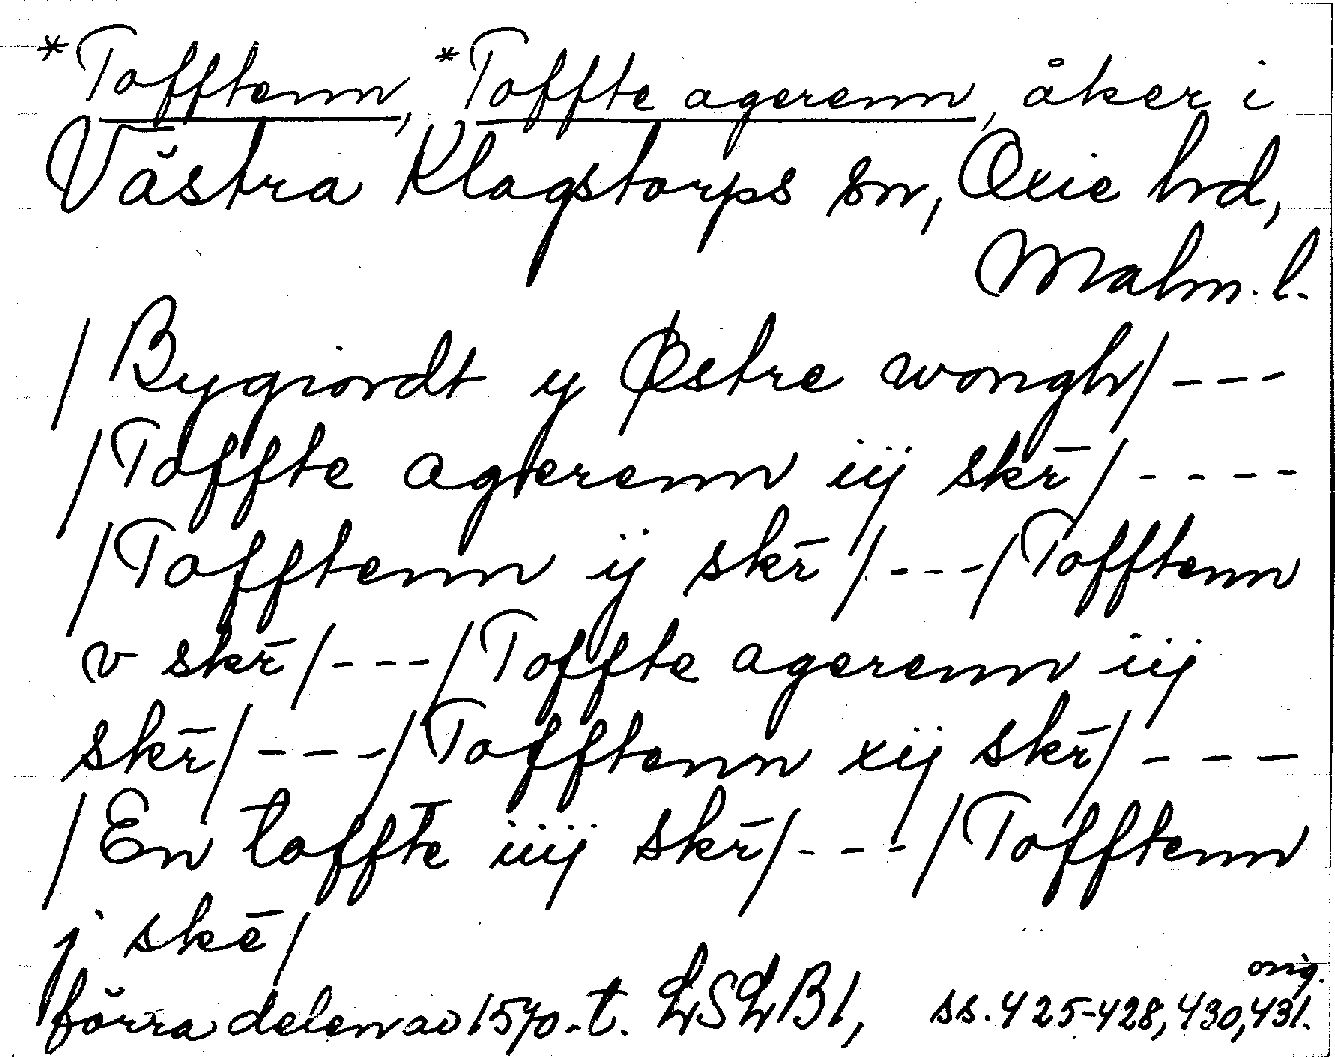 *Tofftenn, *Toffte agerenn, åker i
Västra Klagstorps sn, Oxie hd,
Malm. l.
/Bygiordt y Østre wongh/---
/Toffte agerenn iij skr̄/----
/Tofftenn ij skr̄/---/Tofftenn
v skr̄/---/Toffte agerenn iij
skr̄/---/Tofftenn xij skr̄/---
/En toffte iiij skr̄/---/Tofftenn
j skē/
orig.
förra delen av 1570-t. LSLB1, ss. 425-428, 430, 431.